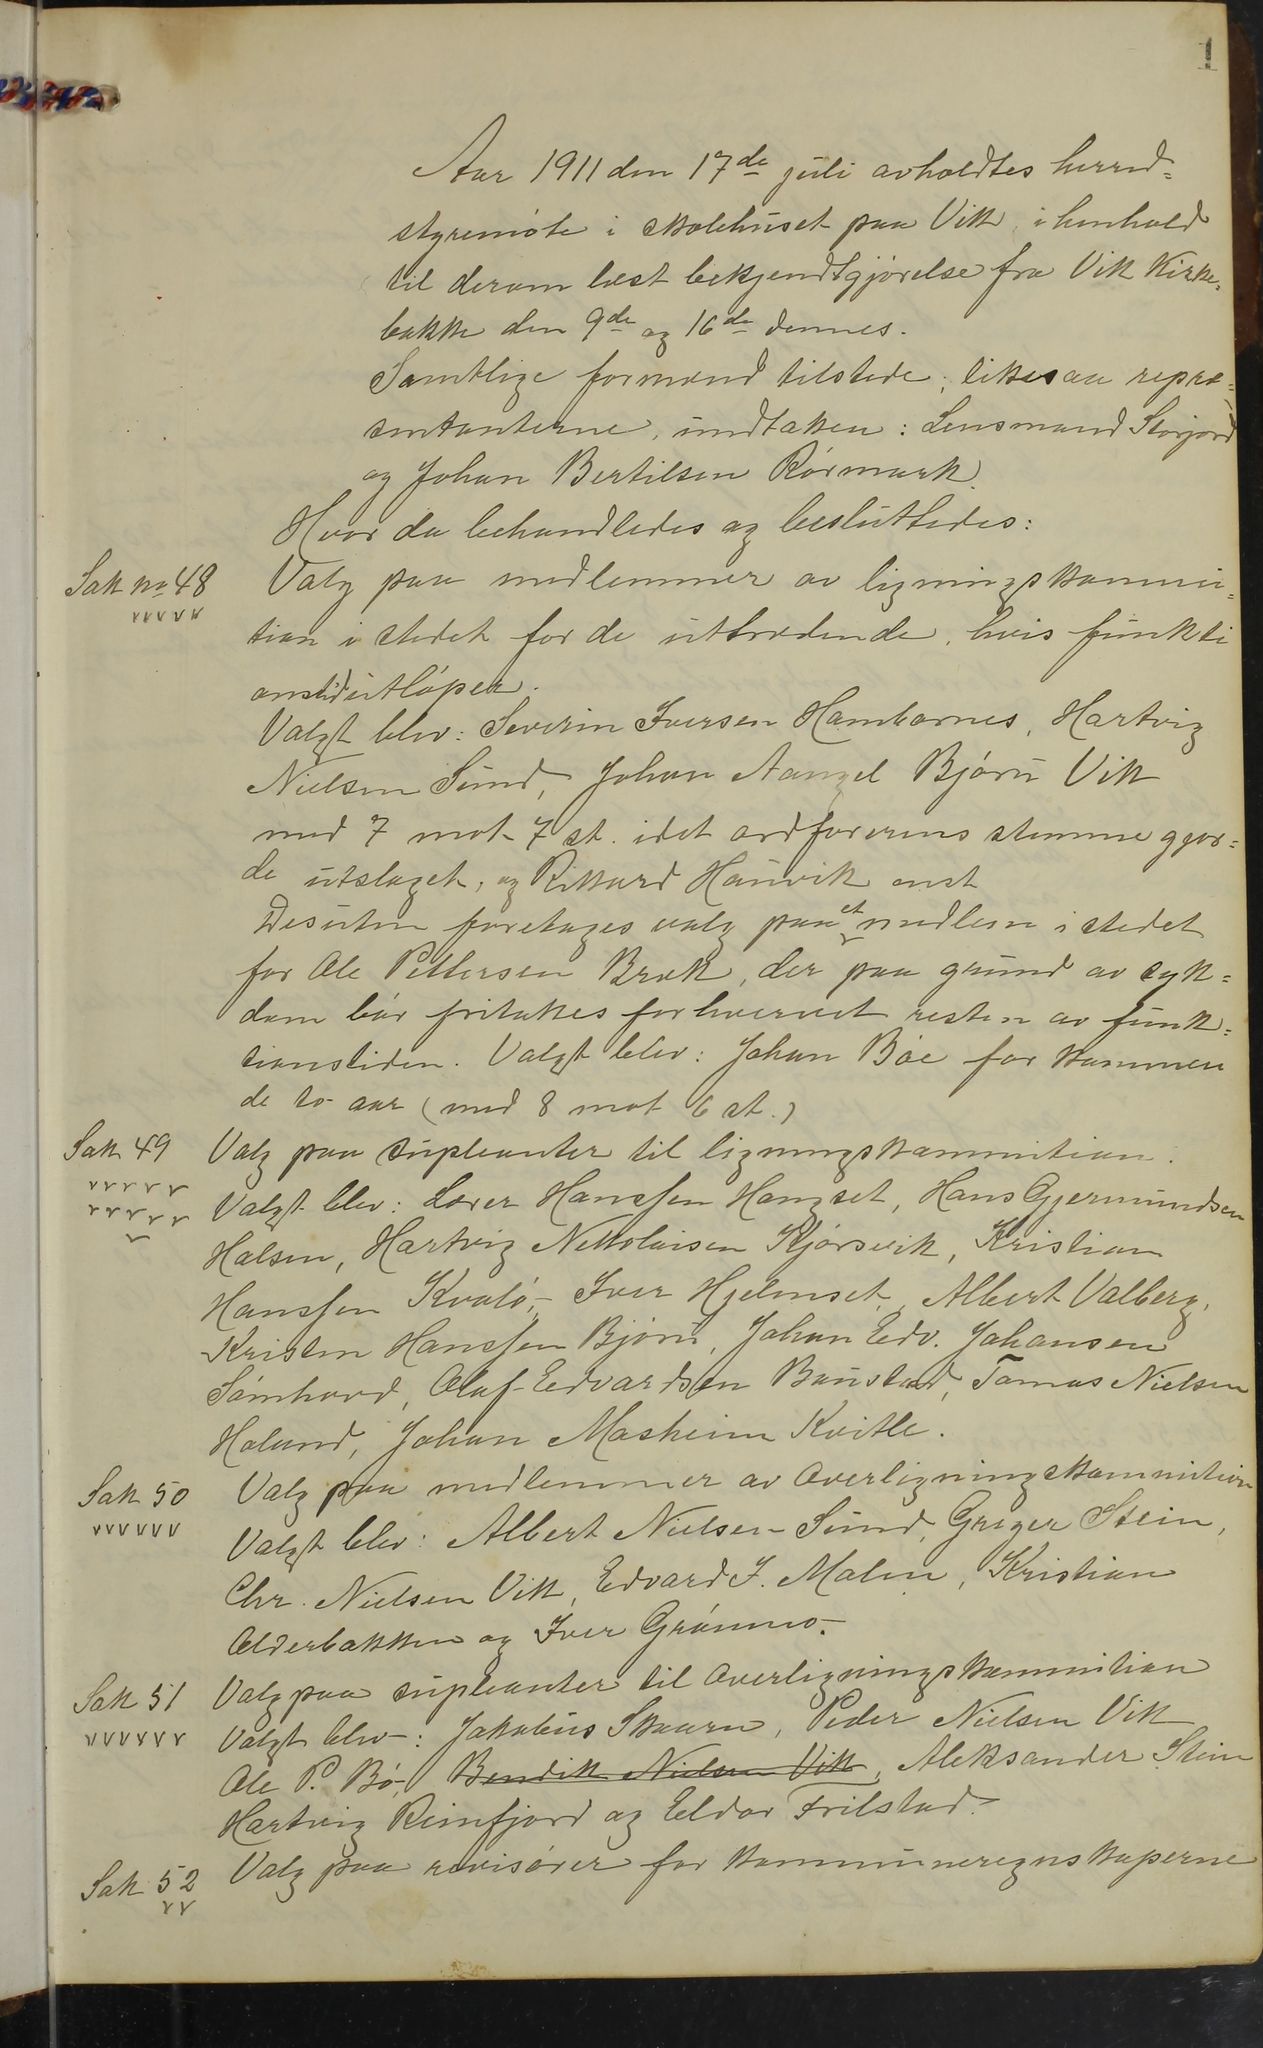 1
Aar 1911 den 17de juli avholdtes herred=
styremöte i skolehuset paa Vik, i henhold
til derom læst bekjendtgjörelse fra Vik Kirke=
bakke den 9de og 16de dennes.
Samtlige formænd tilstede, likesaa repræ=
sentanterne, undtaken: Lensmand Storjord
og Johan Bertilsen Rörmark.
Hvor da behandledes og besluttedes:
Sak no 48 Valg paa medlemmer av ligningskommis=
tion i stedet for de uttrædende, hvis funkti
onstid utlöper.
Valgt blev: Severin Iversen Hambornes, Hartvig
Nielsen Sund, Johan Aangel Björu Vik
med 7 mot 7 st. idet ordförerens stemme gjor=
de utslaget, og Rikard Hauvik enst
Desuten foretages valg paa et medlem i stedet
for Ole Pettersen Bræk, der paa grund av syk=
dom bör fritakes forhvervet resten av funk=
tionstiden. Valgt blev: Johan Böe for kommen
de to aar (med 8 mot 6 st.)
Sak 49 Valg paa supleanter til ligningskommistion.
Valgt blev: Lorer Hanssen Hangset, Hans Gjermundsen
Halsen, Hartvig Nikolaisen Kjörsvik, Kristian
Hanssen Kvalö, Iver Hjelmset, Albert Valberg,
Kristen Hanssen Björu, Johan Edv. Johansen
Sömhovd, Olaf Edvardsen Baustad, Tomas Nielsen
Holand, Johan Masheim Kvitle.
Sak 50 Valg paa medlemmer av Overligningskommistion
Valgt blev: Albert Nielsen Sund, Greger Stein,
Chr. Nielsen Vik, Edvard J. Malin, Kristian
Olderbakken og Iver Grönmo.
Sak 51 Valg paa supleanter til Overligningskommistion
Valgt blev: Jakobus Skaarn, Peder Nielsen Vik
Ole P. Bö, Bendik Nielsen Vik, Aleksander Stein
Hartvig Reinfjord og Eldor Trilstad.
Sak 52 Valg paa revisörer for kommuneregnskaperne